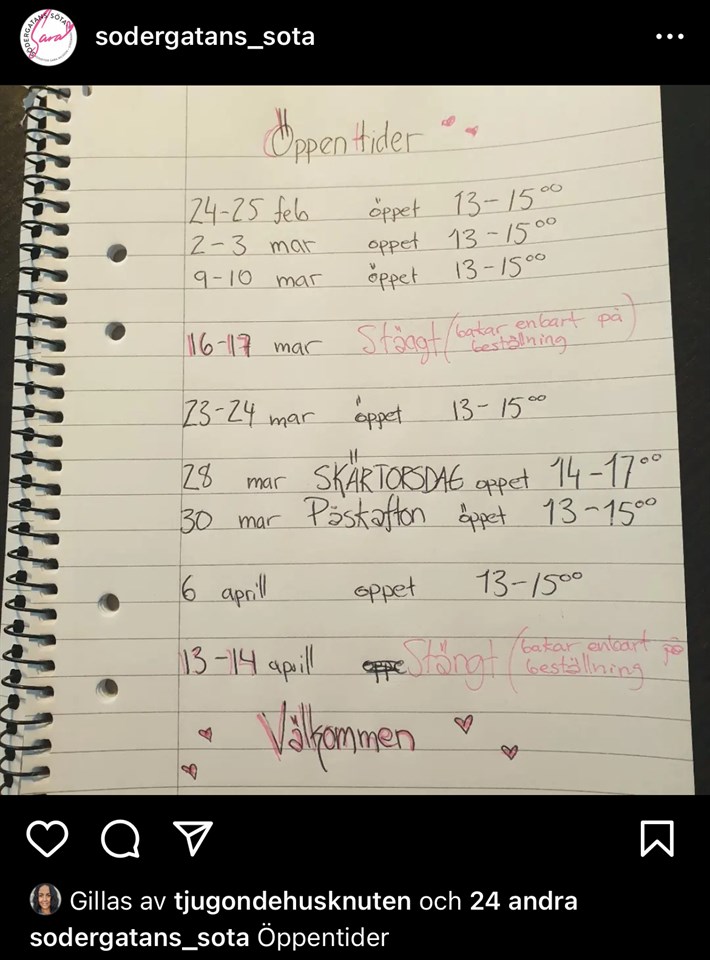 SÖDERGATANS SÖTA
Sara
sodergatans_sota
Öppentider
24-25 feb öppet 13-15⁰⁰
2-3 mar öppet 13-15⁰⁰
9-10 mar öppet 13-15⁰⁰
16-17 mar Stängt (bakar enbart på
beställning)
23-24 mar öppet 13-15⁰⁰
28 mar SKÄRTORSDAG öppet 14-17⁰⁰
30 mar Påskafton öppet 13-15⁰⁰
6 aprill öppet 13-15⁰⁰
13-14 aprill öppe Stängt (bakar enbart på
beställning
Välkommen
Gillas av tjugondehusknuten och 24 andra
sodergatans_sota Öppentider